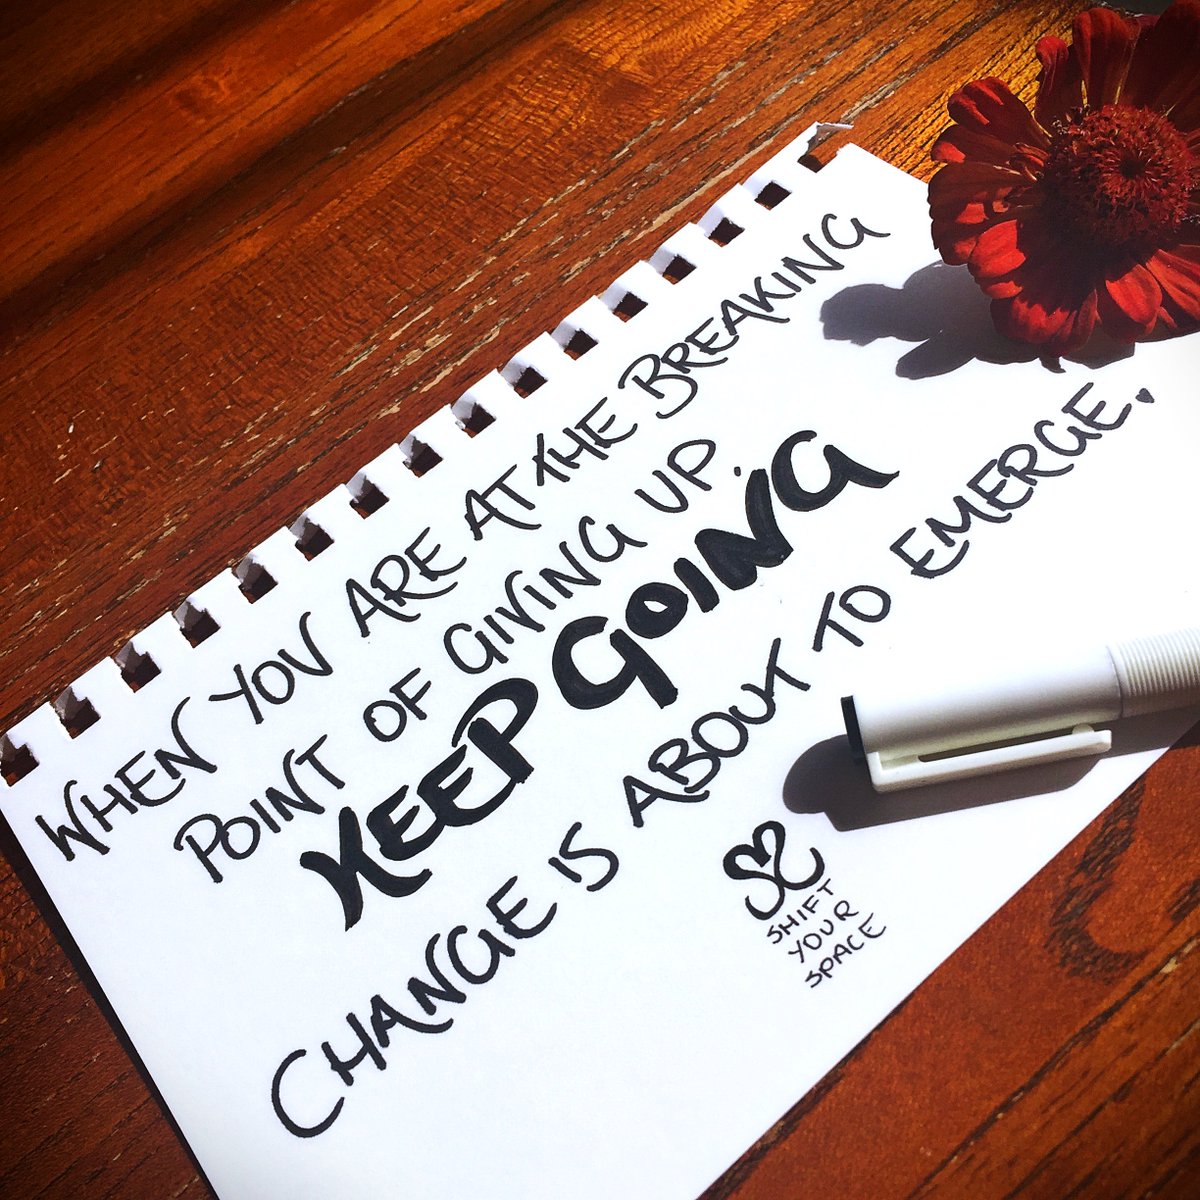 WHEN YOU ARE AT THE BREAKING
POINT OF GIVING UP.
KEEP GOING
CHANGE IS ABOUT TO EMERGE.
SHIFT
YOUR
SPACE